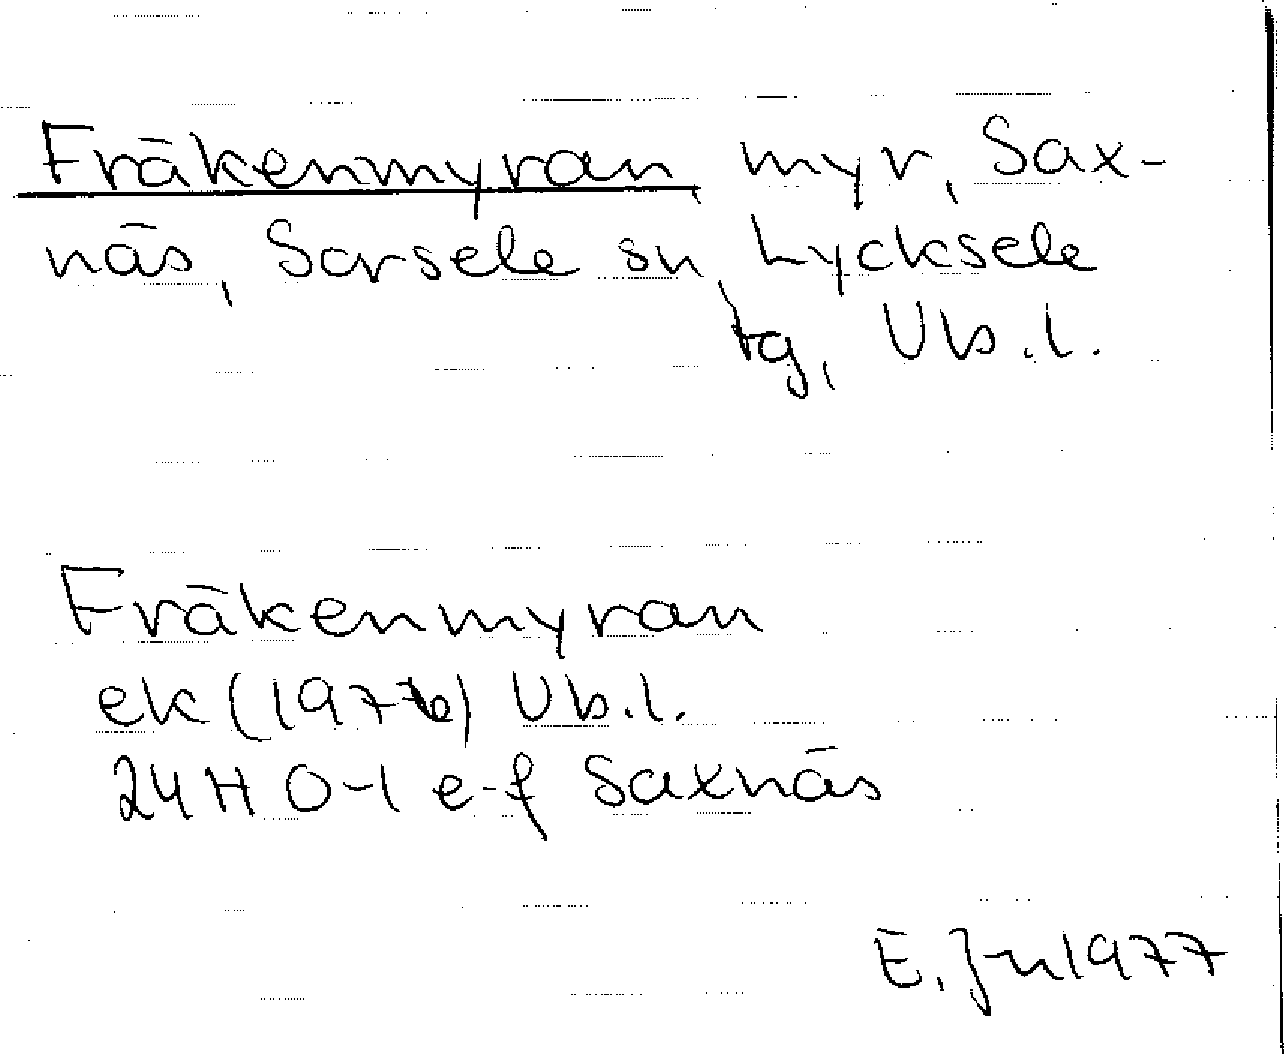 Fräkenmyran, myr, Sax-
näs, Sorsele sn, Lycksele
tg, Vb.l.
Fräkenmyran
ek (1976) Vb.l.
24 H 0-1 e-f Saxnäs
E. Jn 1977